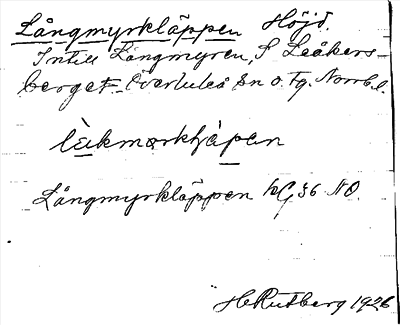 Långmyrkläppen Höjd.
Intill Långmyren, S Leåkers-
berget Överluleå Sn o. Tg. Norrb. l.
làkmorkhjàpan
Långmyrkläppen kG 36 NO.
H Rutberg 1926